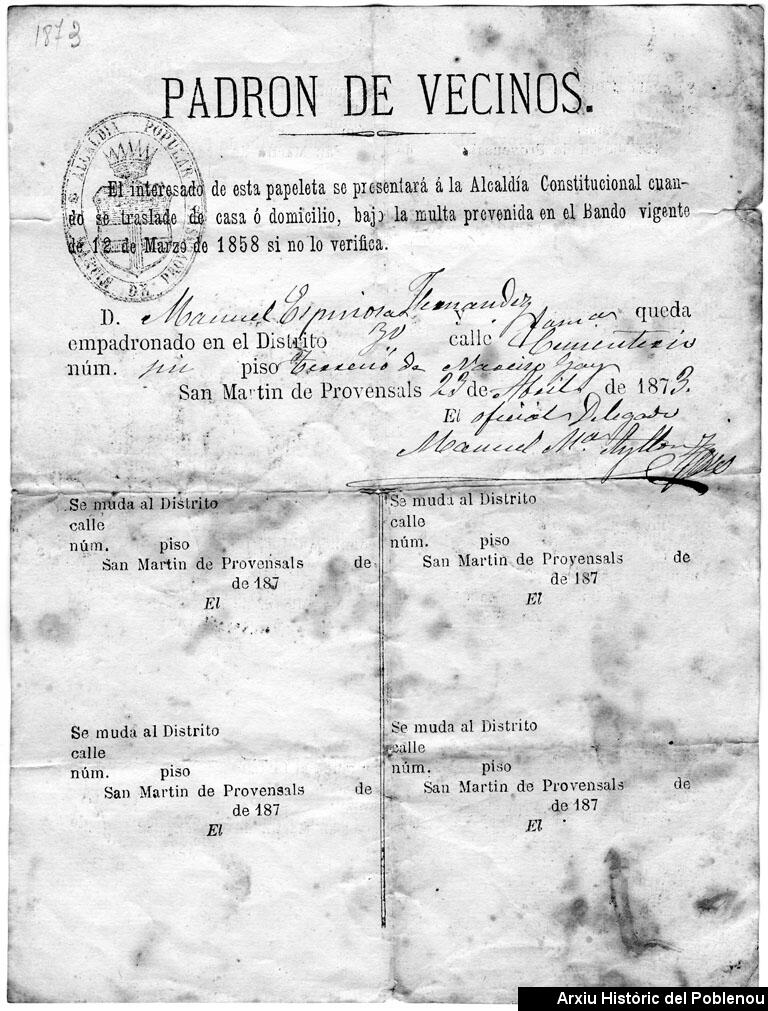 1873
PADRON DE VECINOS.
ALCALDÍA POPULAR
MARTIN DE PROVENSALS
El interesado de esta papeleta se presentará á la Alcaldía Constitucional cuan-
do se traslade de casa ó domicilio, bajo la multa prevenida en el Bando vigente
de 12 de Marzo de 1858 si no lo verifica.
D. Manuel Espinosa Fernandez queda
empadronado en el Distrito 3º calle Cementerio
núm. piso Terreno de Narciso Gay
San Martin de Provensals 23 de Abril de 1873.
El oficial Delegado
Manuel Mª Ayllon
Se muda al Distrito
calle
núm. piso
San Martin de Provensals de
de 187
El
Se muda al Distrito
calle
núm. piso
San Martin de Provensals de
de 187
El
Se muda al Distrito
calle
núm. piso
San Martin de Provensals de
de 187
El
Se muda al Distrito
calle
núm. piso
San Martin de Provensals de
de 187
El
Arxiu Històric del Poblenou